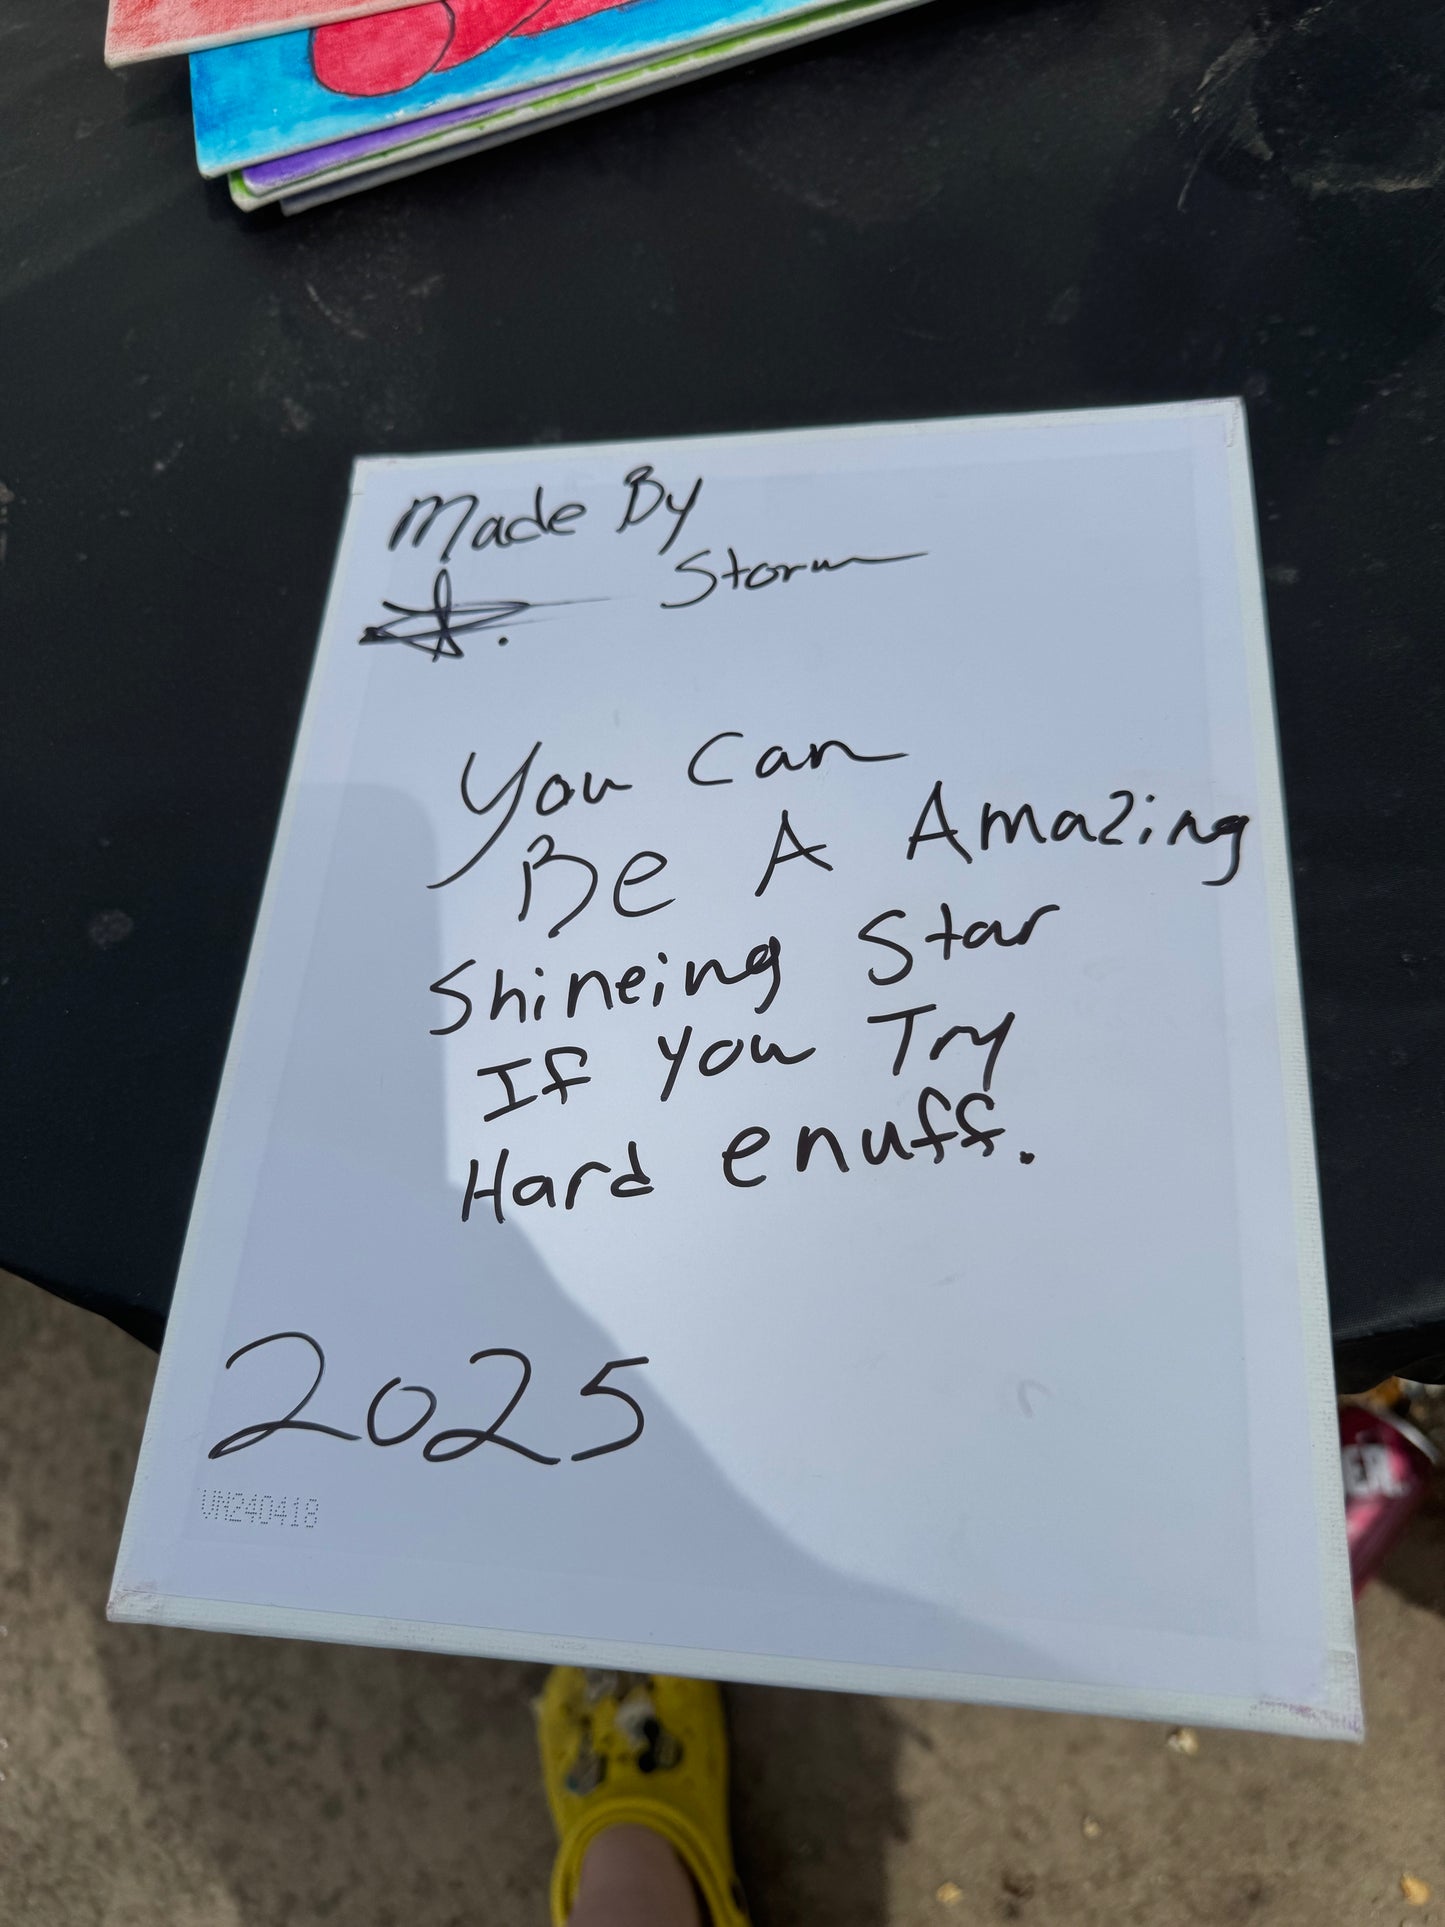 Made By
Storm
You Can
Be A Amazing
Shineing Star
If You Try
Hard enuff.
2025
UN240418
ER